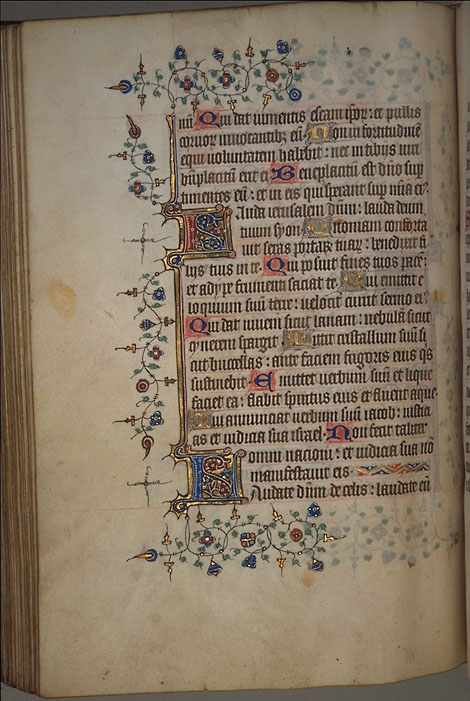 nū Qui dat iumentis escam ipoꝝ : et pullis
coruoꝝ inuocantibꝫ eū Non in fortitudinē
equi uoluntatem habebit : nec in tibijs uiri
bn̄placitū erit ei Beneplacitū est dn̄o sup
timentes eū : et in eis qui sperant sup mīa ei᾽
Lauda ierusalem dn̄m : lauda deum
tuum syon Quoniam conforta
uit seras portaꝝ tuaꝝ : benedixit fi
lijs tuis in te Qui posuit fines tuos pacē :
et adype frumenti saciat te Qui emittit e
loquium suū terre : uelocit᾽ currit sermo ei᾽
Qui dat niuem sicut lanam : nebulā sicut
cynerem spargit Mittit cristallum suū si
cut buccellas : ante faciem frigoris eius qs
sustinebit Emittet uerbum suū et lique
faciet ea : flabit spiritus eius et fluent aque
Qui annunciat uerbum suū iacob : iustici
as et iudicia sua israel Non fecit taliter
omni nacioni : et iudicia sua nō
manifestauit eis
Laudate dn̄m de celis : laudate eū